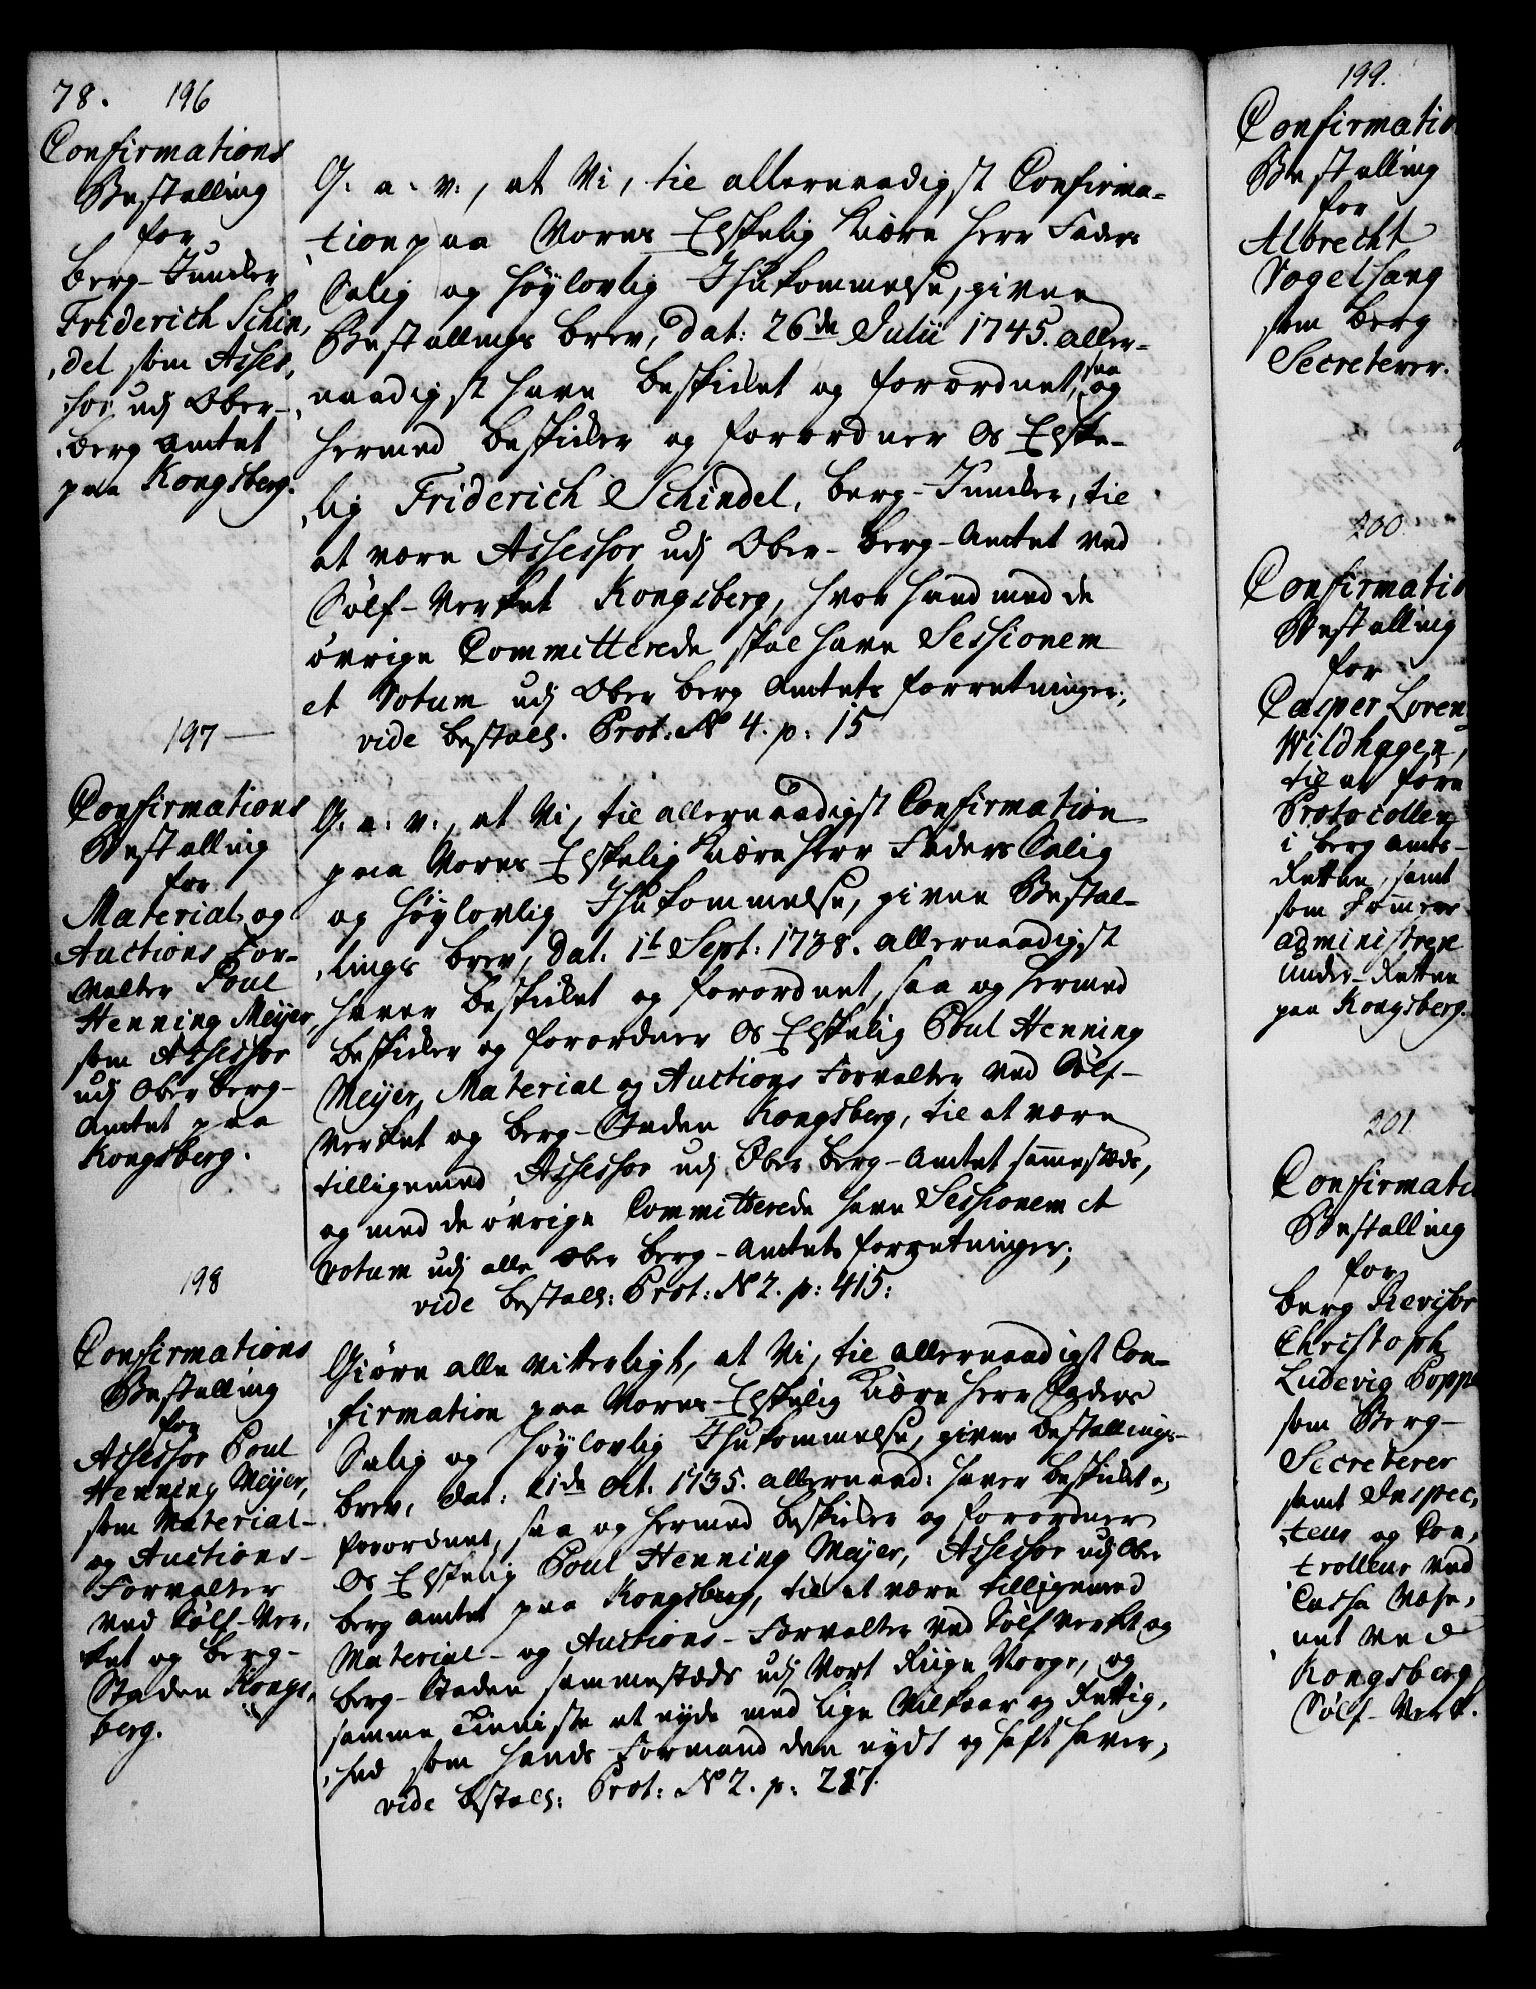 78. 196
Confirmations
Bestalling
for
Berg-Juncker
Friderich Schin,
,del som Asses,
,sor udj Ober-
,berg Amtet
paa Kongsberg.
G: a: v:, at Vi, til allernaadigst Confirma-
,tion paa Vores Elskelig Kiære Herr Faders
Salig og Høylovlig Ihukommelse, given
Bestallings Brev, dat: 26de Julii 1745. aller-
naadigst have beskicket og forordnet, saa og
hermed beskicker og forordner Os Elske-
,lig Friderich Schindel, Berg-Juncker, til
at være Assessor udj Ober-Berg-Amtet ved
Sølf-Verket Kongsberg, hvor hand med de
øvrige Committerede skal have Sessionem
et Votum udj Ober Berg Amtets forretninger;
vide Bestall. Prot: No 4. p: 15
197
Confirmations
Bestalling
for
Material og
Auctions For-
valter Poul
Henning Meijer,
som Assessor
udj Ober Berg-
Amtet paa
Kongsberg.
G: a: v:, at Vi, til allernaadigst Confirmation
paa Vores Elskelig Kiære Herr Faders Salig
og Høylovlig Ihukommelse, given Bestal-
,lings Brev, dat. 1t Sept: 1738. allernaadigst
haver beskicket og forordnet, saa og hermed
beskicker og forordner Os Elskelig Poul Henning
Meijer, Material og Auctions Forvalter ved Sølf-
Verket og Berg-Staden Kongsberg, til at være
tilligemed Assessor udj Ober Berg-Amtet sammestæds,
og med de øvrige Committerede have Sessionem et
votum udj alle Ober Berg-Amtets forretninger;
vide Bestall: Prot: No 2. p: 415:
198
Confirmations
Bestalling
for
Assessor Poul
Henning Meijer,
som Material-
og Auctions-
Forvalter
ved Sølf-Ver,
ket og Berg-
Staden Kongs,
berg.
Giøre alle vitterligt, at Vi, til allernaadigst Con-
,firmation paa Vores Elskelig Kiære Herr Faders
Salig og Høylovlig Ihukommelse, given Bestallings-
brev, dat: 21de Oct. 1735. allernaad: haver beskicket og
forordnet, saa og hermed beskicker og forordner
Os Elskelig Poul Henning Meijer, Assessor udj Ober
berg amtet paa Kongsberg, til at være tilligemed
Material- og Auctions-Forvalter ved Sølf verket og
berg-Staden sammestæds udj Vort Riige Norge, og
samme Tieniste at nyde med lige Vilkaar og Rettig,
,hed som hands Formand den nydt og haft haver,
vide Bestall: Prot: No 2. p: 217.
199.
Confirmatio
Bestalling
for
Albrecht
Vogelsang
som Berg
Secreterer.
200
Confirmatio
Bestalling
for
Casper Loren
Wildhagen,
til at føre
Protocollen
i Berg Amts-
Retten, samt
som
administrere
Under-Retten
paa Kongsberg.
201
Confirmati
Bestalling
for
Berg Revisor
Christoph
Ludevig Poppe
som Berg-
Secreterer
samt Inspec,
,teur og Con,
,trolleur ved
Cassa Væse,
net ved
Kongsberg
Sølf-Verk.